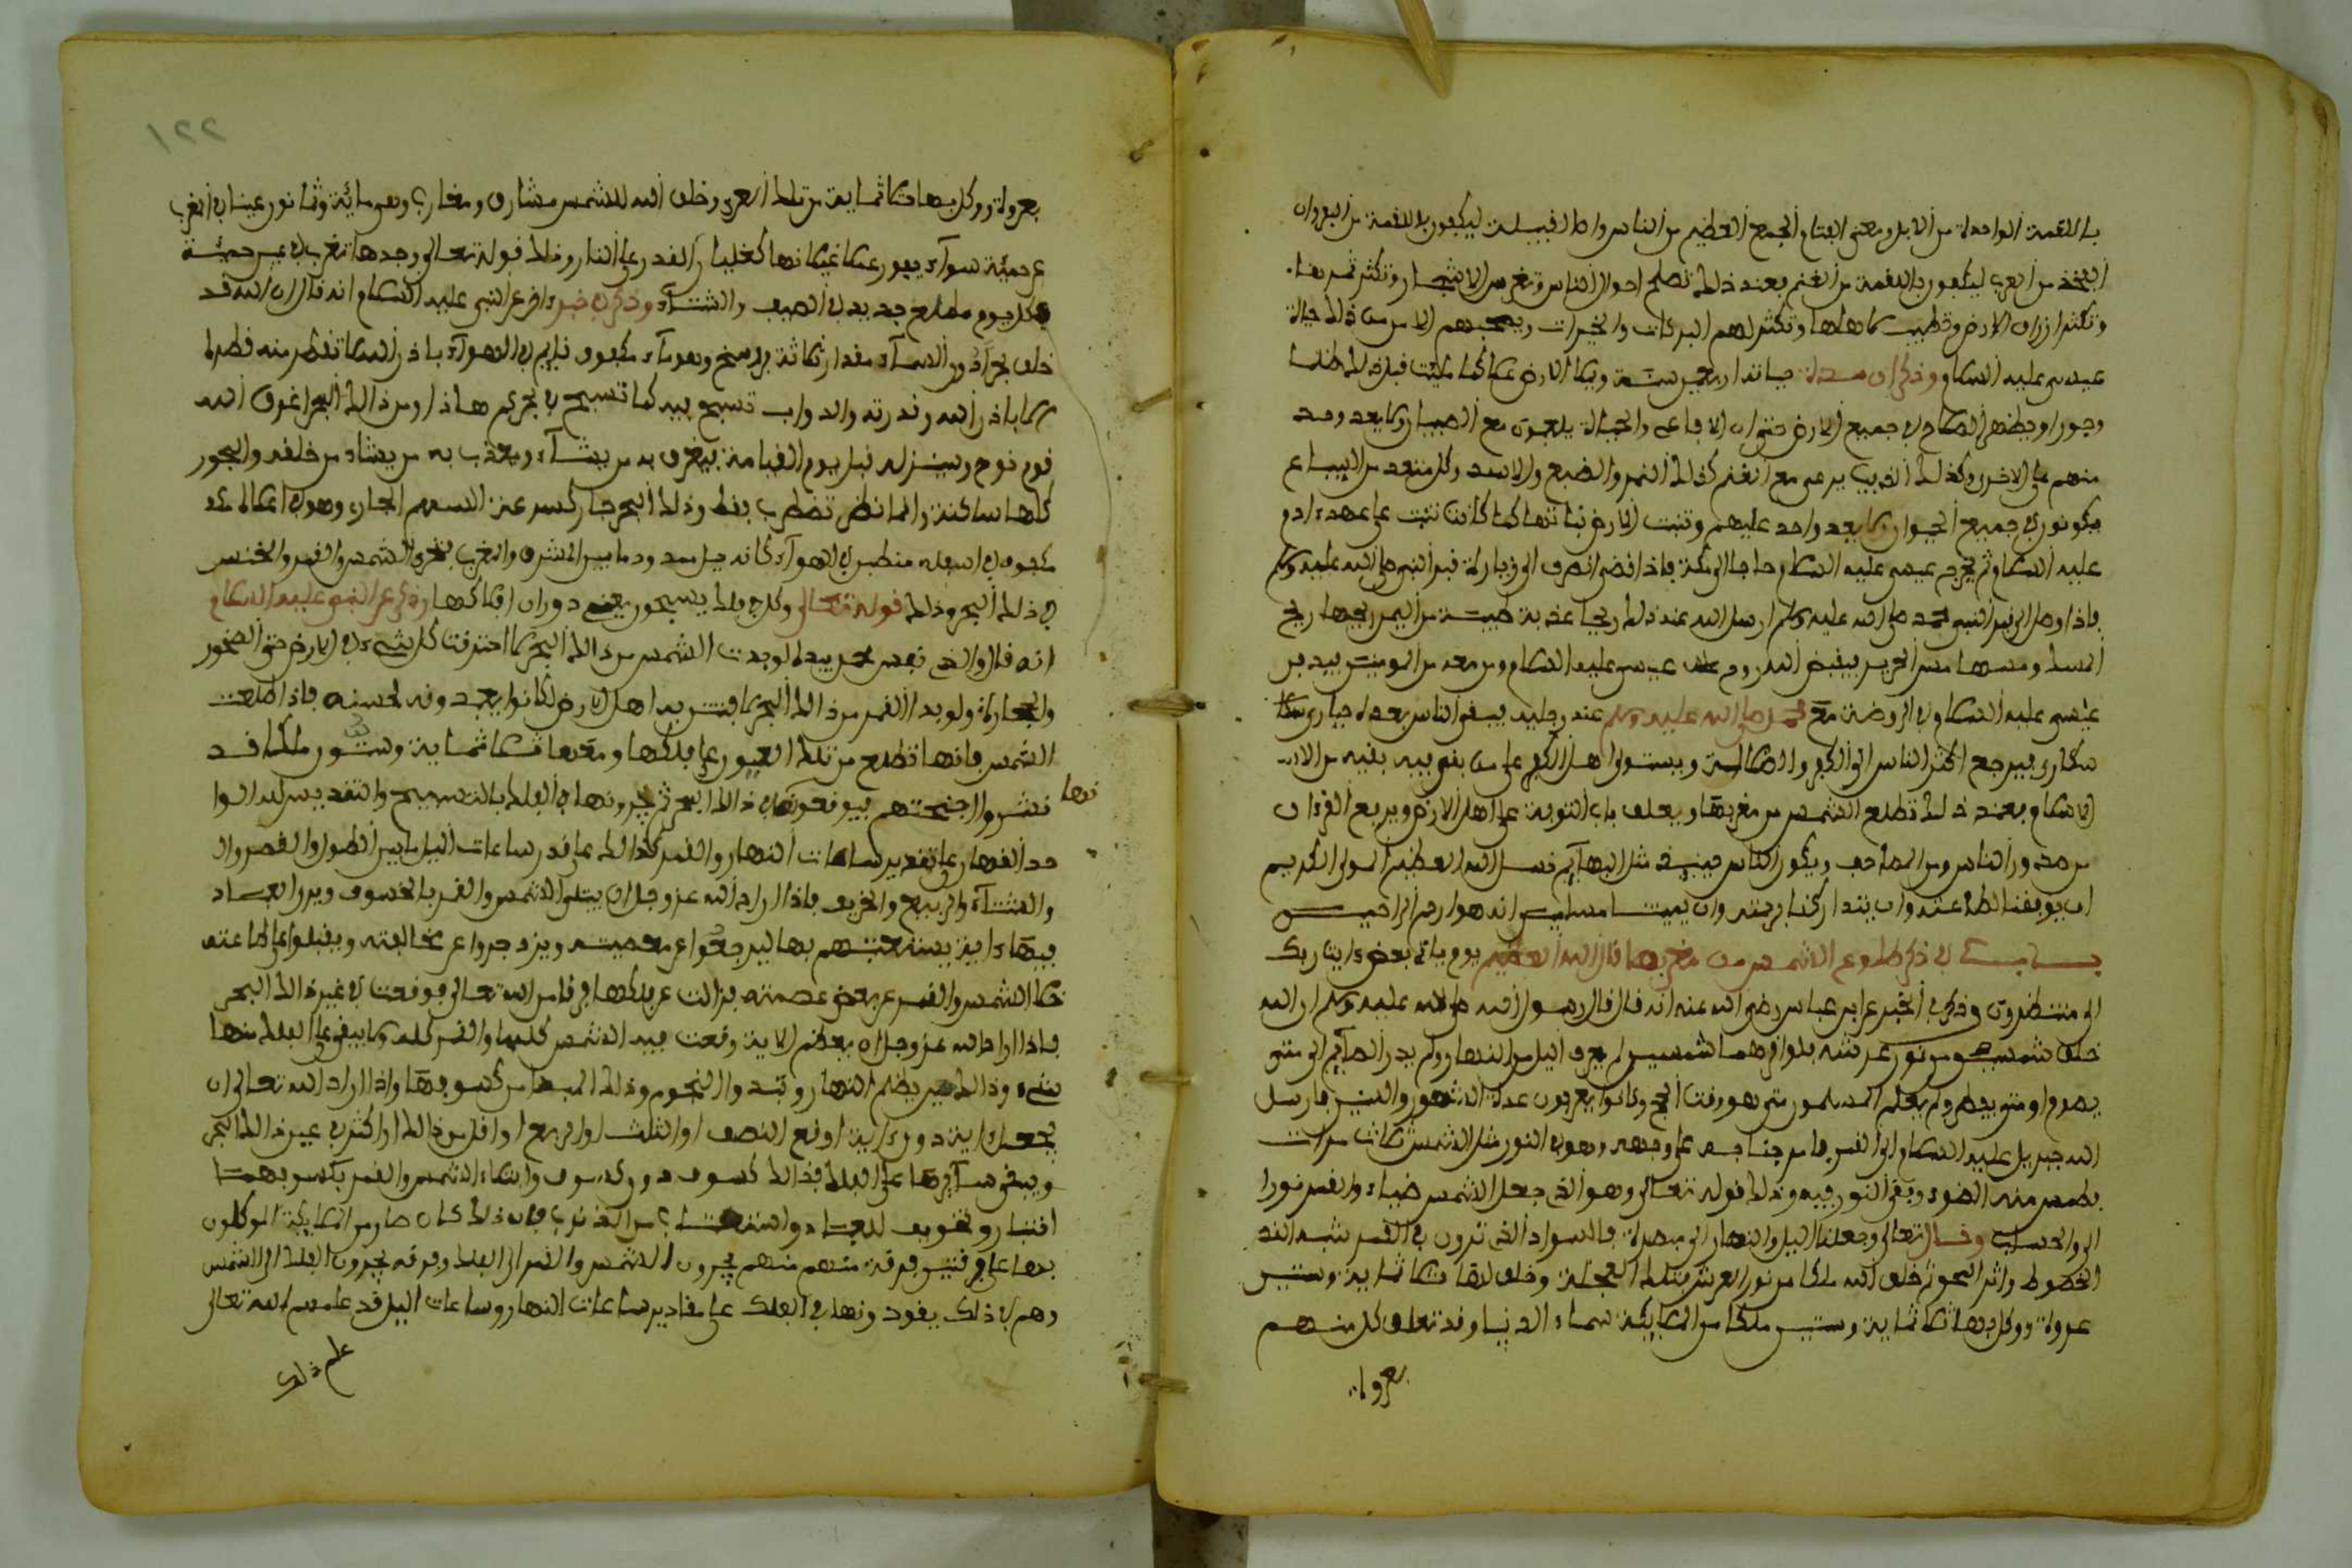 باللقمة الواحدة من الابل ومعنى الفئام الجمع العظيم من الناس واما القبيلة ليكفون باللقمة من البقر وان
الفخذ من العرب ليكفون باللقمة من الغنم بعند ذلك تصلح احوال الناس وتغرس الاشجار وتكثر ثمرها
وتكثر ارزاق الارض وتطيب لاهلها وتكثر لهم البركات والخيرات
عيسى عليه السلام وذكر ان مدة حياته اربعين سنة ويملا الارض عدلا كما مليت قبل ذلك ظلما
وجورا ويظهر الاسلام في جميع الارض حتى ان الافاعي والحيات يلعبون مع الصبيان ولا يعدو احد
منهم على الاخر وكذلك الذيب يرعى مع الغنم كذلك النمر والضبع والاسد وكل متعد من السباع
يكونون في جميع الحيوان لا يعدو احد عليهم وتنبت الارض نباتها كما كانت تنبت على عهد ادم
عليه السلام ثم يخرج عيسى عليه السلام حاجا الى مكة فاذا قضى انصرف الى زيارة قبر النبي صلى الله عليه وسلم
فاذا وصل الى قبر النبي محمد صلى الله عليه وسلم ارسل الله عند ذلك ريحا عذبة طيبة من اليمن ريحها ريح
المسك ومسها مس الحرير فيقبض الله روح عيسى عليه السلام ومن معه من المومنين فيدفن
عيسى عليه السلام في الروضة مع محمد صلى الله عليه وسلم عند رجليه فيبقى الناس بعده حيارى سكا
سكارى فيرجع اكثر الناس الى الكفر والضلالة ويستولى اهل الكفر على من بقي فيه بقية من الا
الاسلام بعند ذلك تطلع الشمس من مغربها ويغلق باب التوبة على اهل الارض ويرفع القرءان
من صدور الناس ومن المصاحف ويكون الناس حينيذ مثل البهايم نسل الله العظيم المولى الكريم
ان يوفقنا لطاعته وان يتداركنا برحمته وان يميتنا مسلمين انه هو ارحم الراحمين
باب في ذكر طلوع الشمس من مغربها قال الله العظيم يوم ياتي بعض ءايات ربك
الى منتظرون وذكر في الخبر عن ابن عباس رضي الله عنه انه قال قال رسول الله صلى الله عليه وسلم ان الله
خلق شمسين من نور عرشه فلو اقرهما شمسين لم يعرف الليل من النهار ولم يدر الصايم الى متى
يصوم او متى يفطر ولم يعلم المسلمون متى هو وقت الحج وكانوا يعرفون عدة الشهور والسنين فارسل
الله جبريل عليه السلام الى القمر فامر جناحه على وجهه وهو في النور مثل الشمس ثلاث مرات
فطمس منه الضوء وبقي النور فيه وذلك قوله تعالى وهو الذي جعل الشمس ضياء والقمر نورا
الى والحساب وقال تعالى وجعلنا الليل والنهار الى مبصرة فالسواد الذي ترون في القمر شبه الند
الخطوط واثر المحو ثم خلق الله ملكا من نور العرش بتلك العجلة وخلق لها ثلاثماية وستين
عروة ووكل بها ثلاثماية وستين ملكا من الملايكة سماء الدنيا وقد تعلق كل منهم
بعروة
١٢٢
بعروة ووكل بها ثلاثماية من تلك العرى وخلق الله للشمس مشارق ومغارب وهو ماية وثمانون عينا في المغرب
من حمئة سوداء يفور غليانها كغليان القدر على النار وذلك قوله تعالى وجدها تغرب في عين حمئة
فكل يوم مطلع جديد في الصيف والشتاء وذكر في خبر ءاخر عن النبي عليه السلام انه قال ان الله قد
خلق بحرا دون السماء مقدار ثلاثة فراسخ وهو ماء مكفوف قايم في الهواء باذن الله لا تقطر منه قطرة
الا باذن الله وقدرته والدواب تسبح فيه كما تسبح في بحركم هاذا ومن ذلك البحر اغرق الله
قوم نوح وسينزله قبل يوم القيامة فيغرق به من يشاء ويعذب به من يشاء من خلقه والبحور
كلها ساكنة وانما تضطرب فقط وذلك البحر جار كسرعة السهم الجاري وهو في
مكفوف منطبق في الهواء كانه حبل ممدود ما بين المشرق والمغرب تجري الشمس والقمر والخنس
في ذلك البحر وذلك قوله تعالى وكل في فلك يسبحون يعني دوران افلاكها وذكر عن النبي عليه السلام
انه قال والذي نفس محمد بيده لو بدت الشمس من ذلك البحر لاحترقت كل شيء في الارض حتى الصخور
والحجارة ولو بدا القمر من ذلك البحر لافتتن به اهل الارض لكانوا يعبدونه لحسنه فاذا طلعت
الشمس فانها تطلع من تلك العيون على فلكها ومعها ثلاثماية وستون ملكا قد
نشروا اجنحتهم فيوقعونها في ذلك البحر ثم يجرونها في الفلك بالتسبيح والتقديس لله الوا
حد القهار على تقدير ساعات النهار والقمر كذلك على قدر ساعات الليل ما بين الطول والقصر وال
والشتاء والربيع والخريف فاذا اراد الله عز وجل ان يبتلي الشمس والقمر بالخسوف ويرى العباد
فيها ءاية يستعتبهم بها ليرجعوا عن معصيته ويزدجروا عن مخالفته ويقبلوا على طاعته
فاذا اراد الله عز وجل ان يعظم الاية وقعت فيه الشمس كلها والقمر كله ولا يبقى على الفلك منها
شيء وذلك حين يظلم النهار وتبدو النجوم وذلك المبتغا من كسوفها واذا اراد الله تعالى ان
يجعل ءاية دون ءاية اوقع النصف او الثلث او الربع او اقل من ذلك او اكثر في غير ذلك البحر
ويبقى سايرها على الفلك فذلك كسوف دون كسوف وابتلاء الشمس والقمر بكسوفهما
اختبار وتخويف للعباد من الذنوب فان ذلك كان صار من الملايكة الموكلون
بهما على فرقتين فرقة منهم يجرون الشمس والقمر الى الفلك وفرقة يجرون الفلك الى الشمس
وهم في ذلك يقودونها في الفلك على مقادير ساعات النهار وساعات الليل قد علمهم الله تعالى
علم ذلك